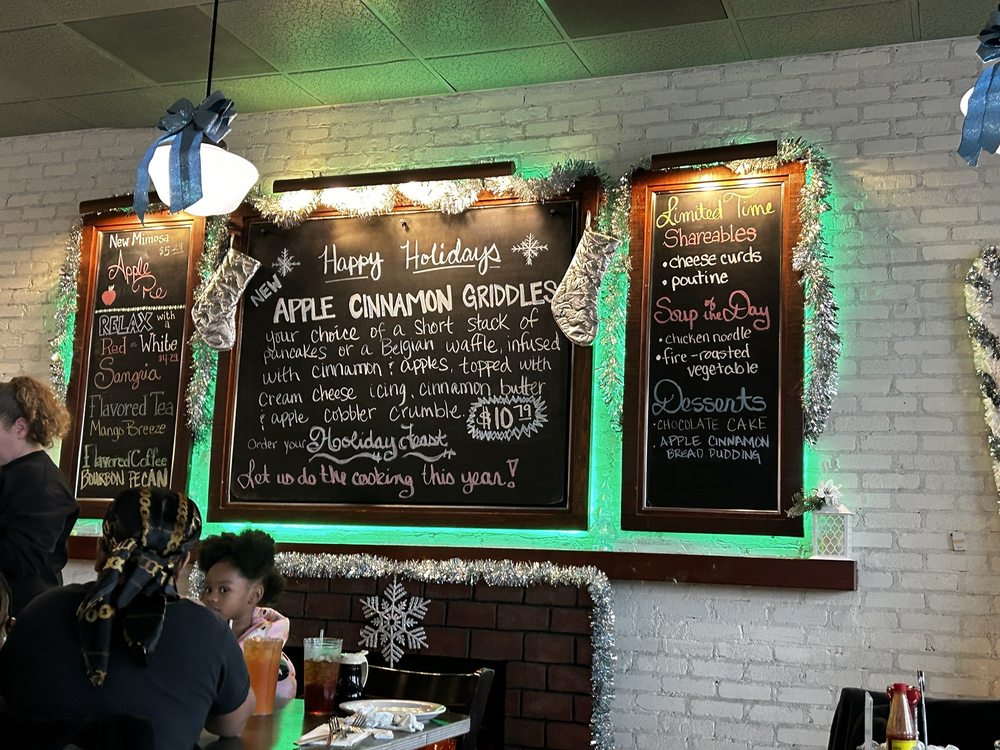 New Mimosa
$5.29
Apple
Pie
RELAX with a
Red or White
$4.29
Sangria
Flavored Tea
Mango Breeze
Flavored Coffee
BOURBON PECAN
Happy Holidays
NEW
APPLE CINNAMON GRIDDLES
your choice of a short stack of
pancakes or a Belgian waffle, infused
with cinnamon & apples, topped with
cream cheese icing, cinnamon butter
& apple cobbler crumble. $10.79
Order your Holiday Feast
Let us do the cooking this year!
Limited Time
Shareables
• cheese curds
• poutine
Soup of the Day
• chicken noodle
• fire-roasted
vegetable
Desserts
• CHOCOLATE CAKE
• APPLE CINNAMON
BREAD PUDDING